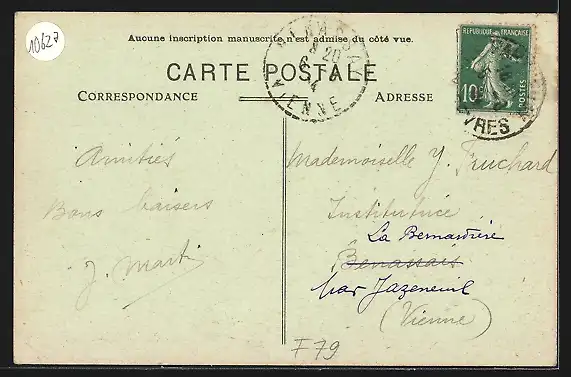 10627
Aucune inscription manuscrite n'est admise du côté vue.
CARTE POSTALE
CORRESPONDANCE
ADRESSE
VIENNE
RÉPUBLIQUE FRANÇAISE
10c
POSTES
VRES
Amitiés
Bons baisers
J. Marti
Mademoiselle Y. Fruchard
Institutrice
La Bernardière
Benassais
par Jazeneuil
(Vienne)
F79